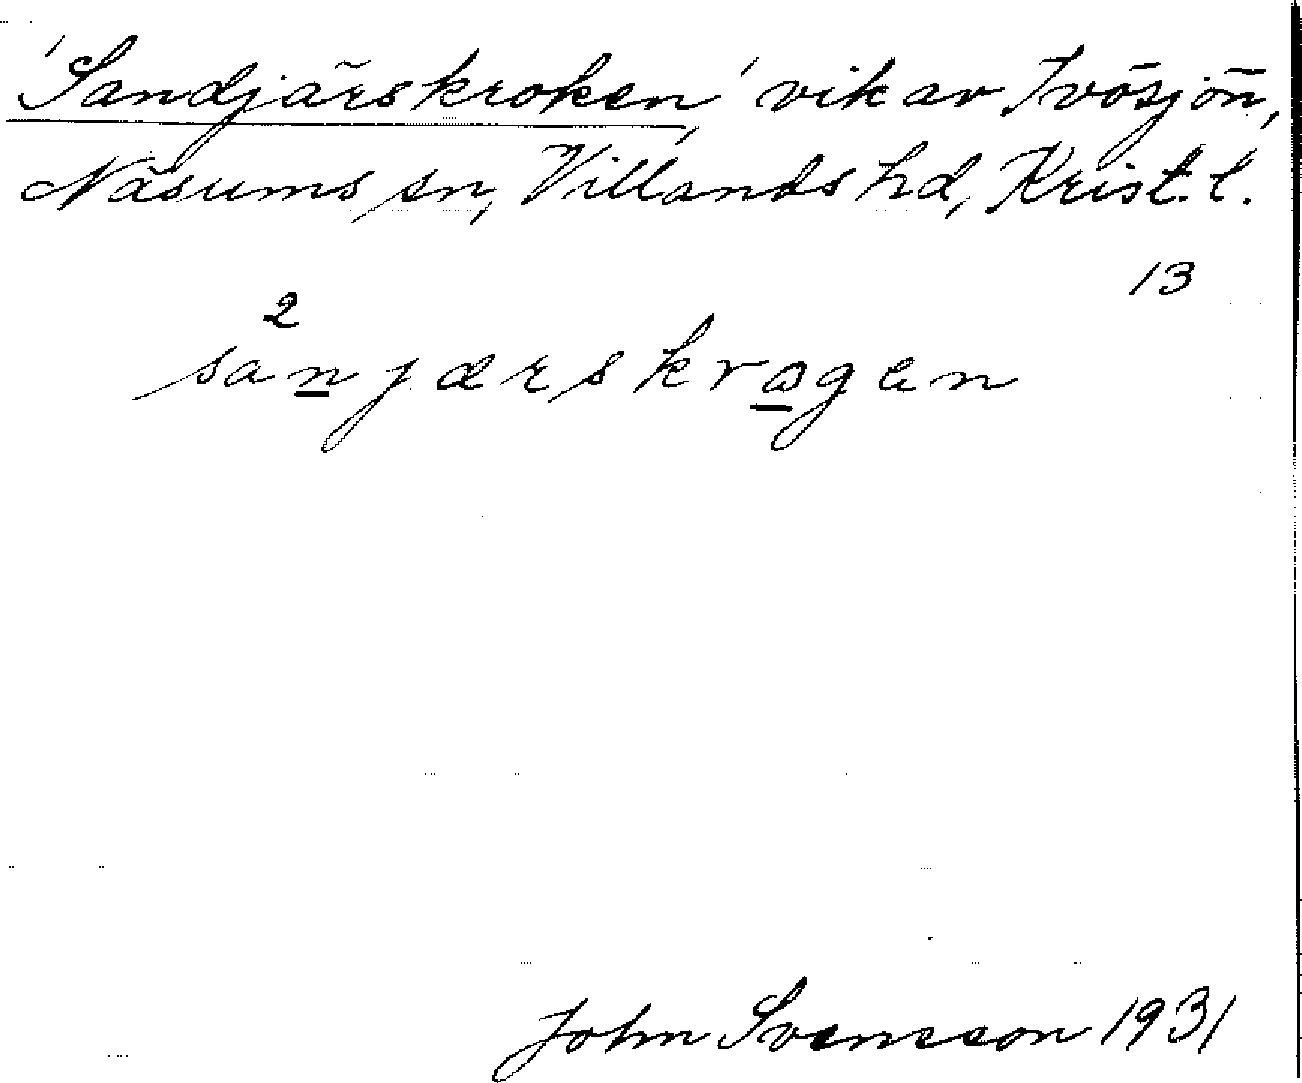 'Sandjärskroken,' vik av Ivösjön,
Näsums sn, Villands hd, Krist. l.
13
2
sanjærskrogen
John Svensson 1931